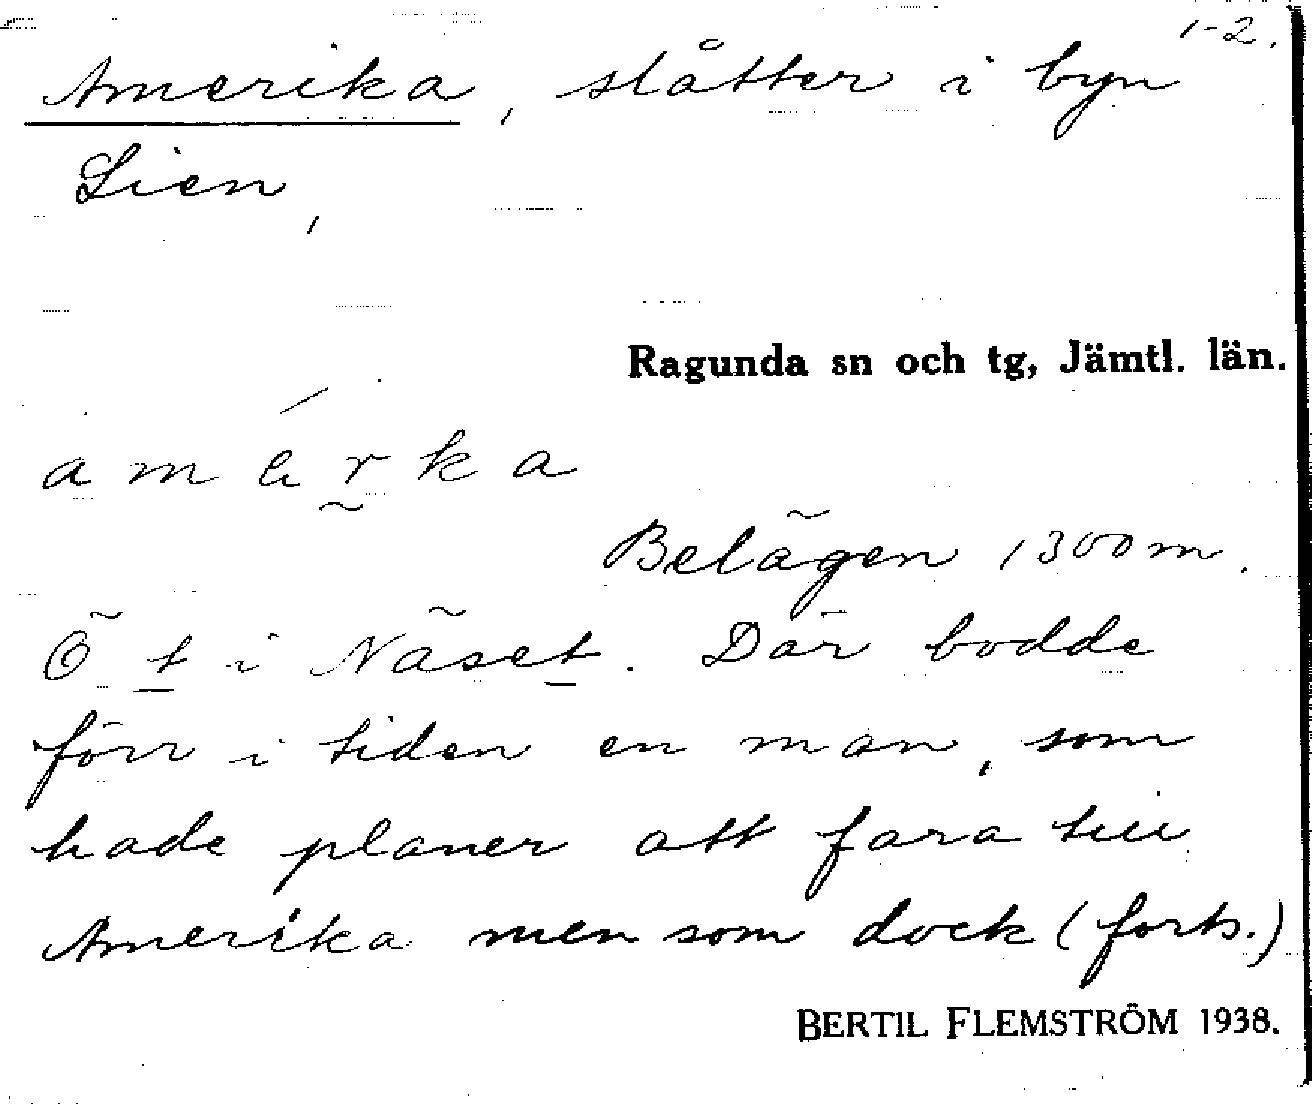 1-2.
Amerika, slåtter i byn
Lien,
Ragunda sn och tg, Jämtl. län.
amérka
Belägen 1300 m.
Ö t i Näset. Där bodde
förr i tiden en man, som
hade planer att fara till
Amerika men som dock (forts.)
BERTIL FLEMSTRÖM 1938.